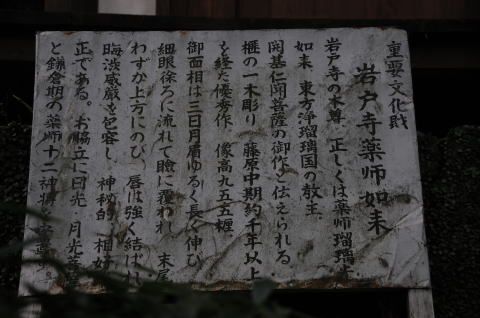 重要文化財
岩戸寺薬師如来
岩戸寺の本尊 正しくは薬師瑠璃光
如来 東方浄瑠璃国の教主
開基仁聞菩薩の御作と伝えられる
榧の一木彫り 藤原中期約千年以上
を経た優秀作 像高九五五糎
御面相は三日月眉ゆるく長く伸び
細眼徐ろに流れて瞼に覆われ 末尾
わずか上方にのび、唇は強く結ばれ
晦渋威厳を包容し 神秘的 相好
正である。お脇立に日光・月光菩薩
と鎌倉期の薬師十二神将